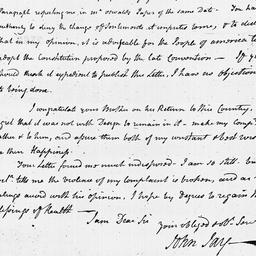 Paragraph respecting me in Mr Oswalds Paper of the same Date - You have
authority to deny the change of Sentiments it imputes to me, & to declare
that in my opinion, it is adviseable for the People of america to
adopt the Constitution proposed by the late Convention - If you
should think it expedient to publish this Letter, I have no objections
to being done.
I congratulate your Brother on his Return to this Country.
regret that it was not with Design to remain in it - make my compts
& to him, and assure them both of my constant & best
for their Happiness.
Your Letter found me much indisposed - I am so still. but
tell me the violence of my complaint is broken, and
accord with his opinion. I hope by Degrees to regain the
Blessings of Health -
I am Dear Sir
your obliged & obt Serv
John Jay -